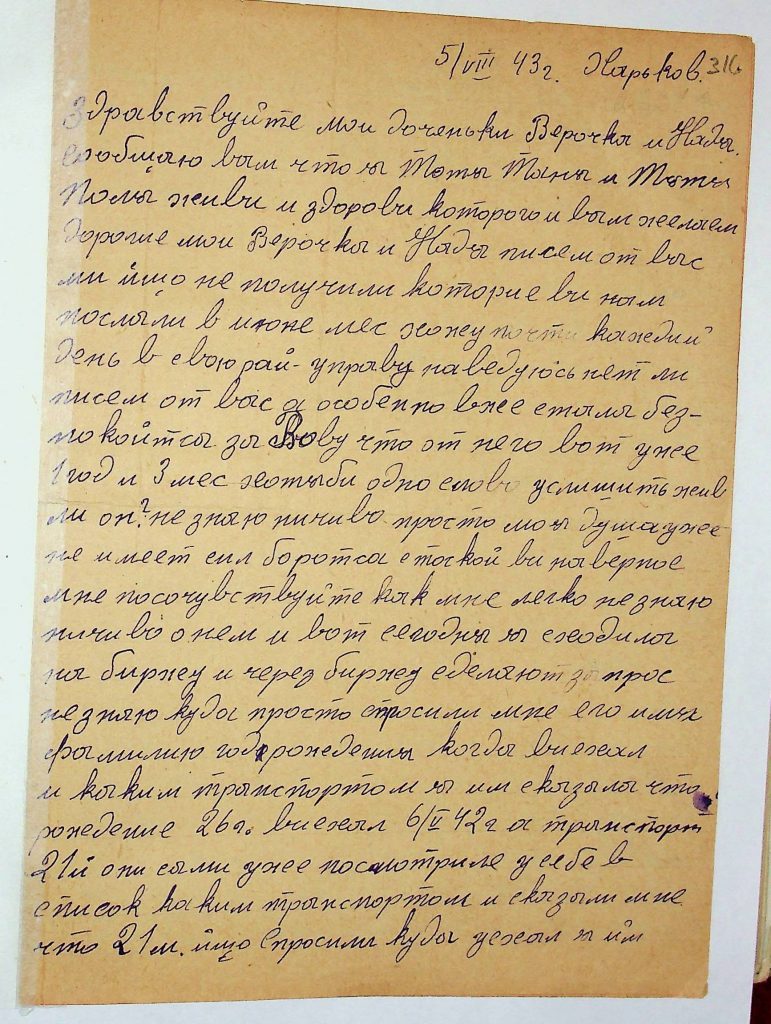 5/VIII 43г. Харьков. 316
Здравствуйте мои доченьки Верочка и Надя.
сообщаю вам что я Тотя Таня и Тотя
Поля живи и здорови которого и вам желаем
дорогие мои Верочка и Надя писем от вас
ми йщо не получили которие ви нам
послали в июне мес хожу почти каждий
день в свою рай-управу наведуюсь нет ли
писем от вас а особенно вже стала без-
покойтса за Вову что от него вот уже
1 год и 3 мес хотяби одно слово услишить жив
ли он? не знаю ничиво просто моя душа уже
не имеет сил боротса стоской ви наверное
мне посочувствуйте как мне легко не знаю
ничиво о нем и вот сегодня я сходила
на биржу и через биржу сделают запрос
не знаю куда просто спросили мне его имя
фамилию год рождения когда виехал
и каким транспортом я им сказала что
рождение 26г. виехал 6/V 42г а транспорт
21й они сами уже посмотриле у себе в
список каким транспортом и сказали мне
что 21м. йщо спросили куда уехал я йм